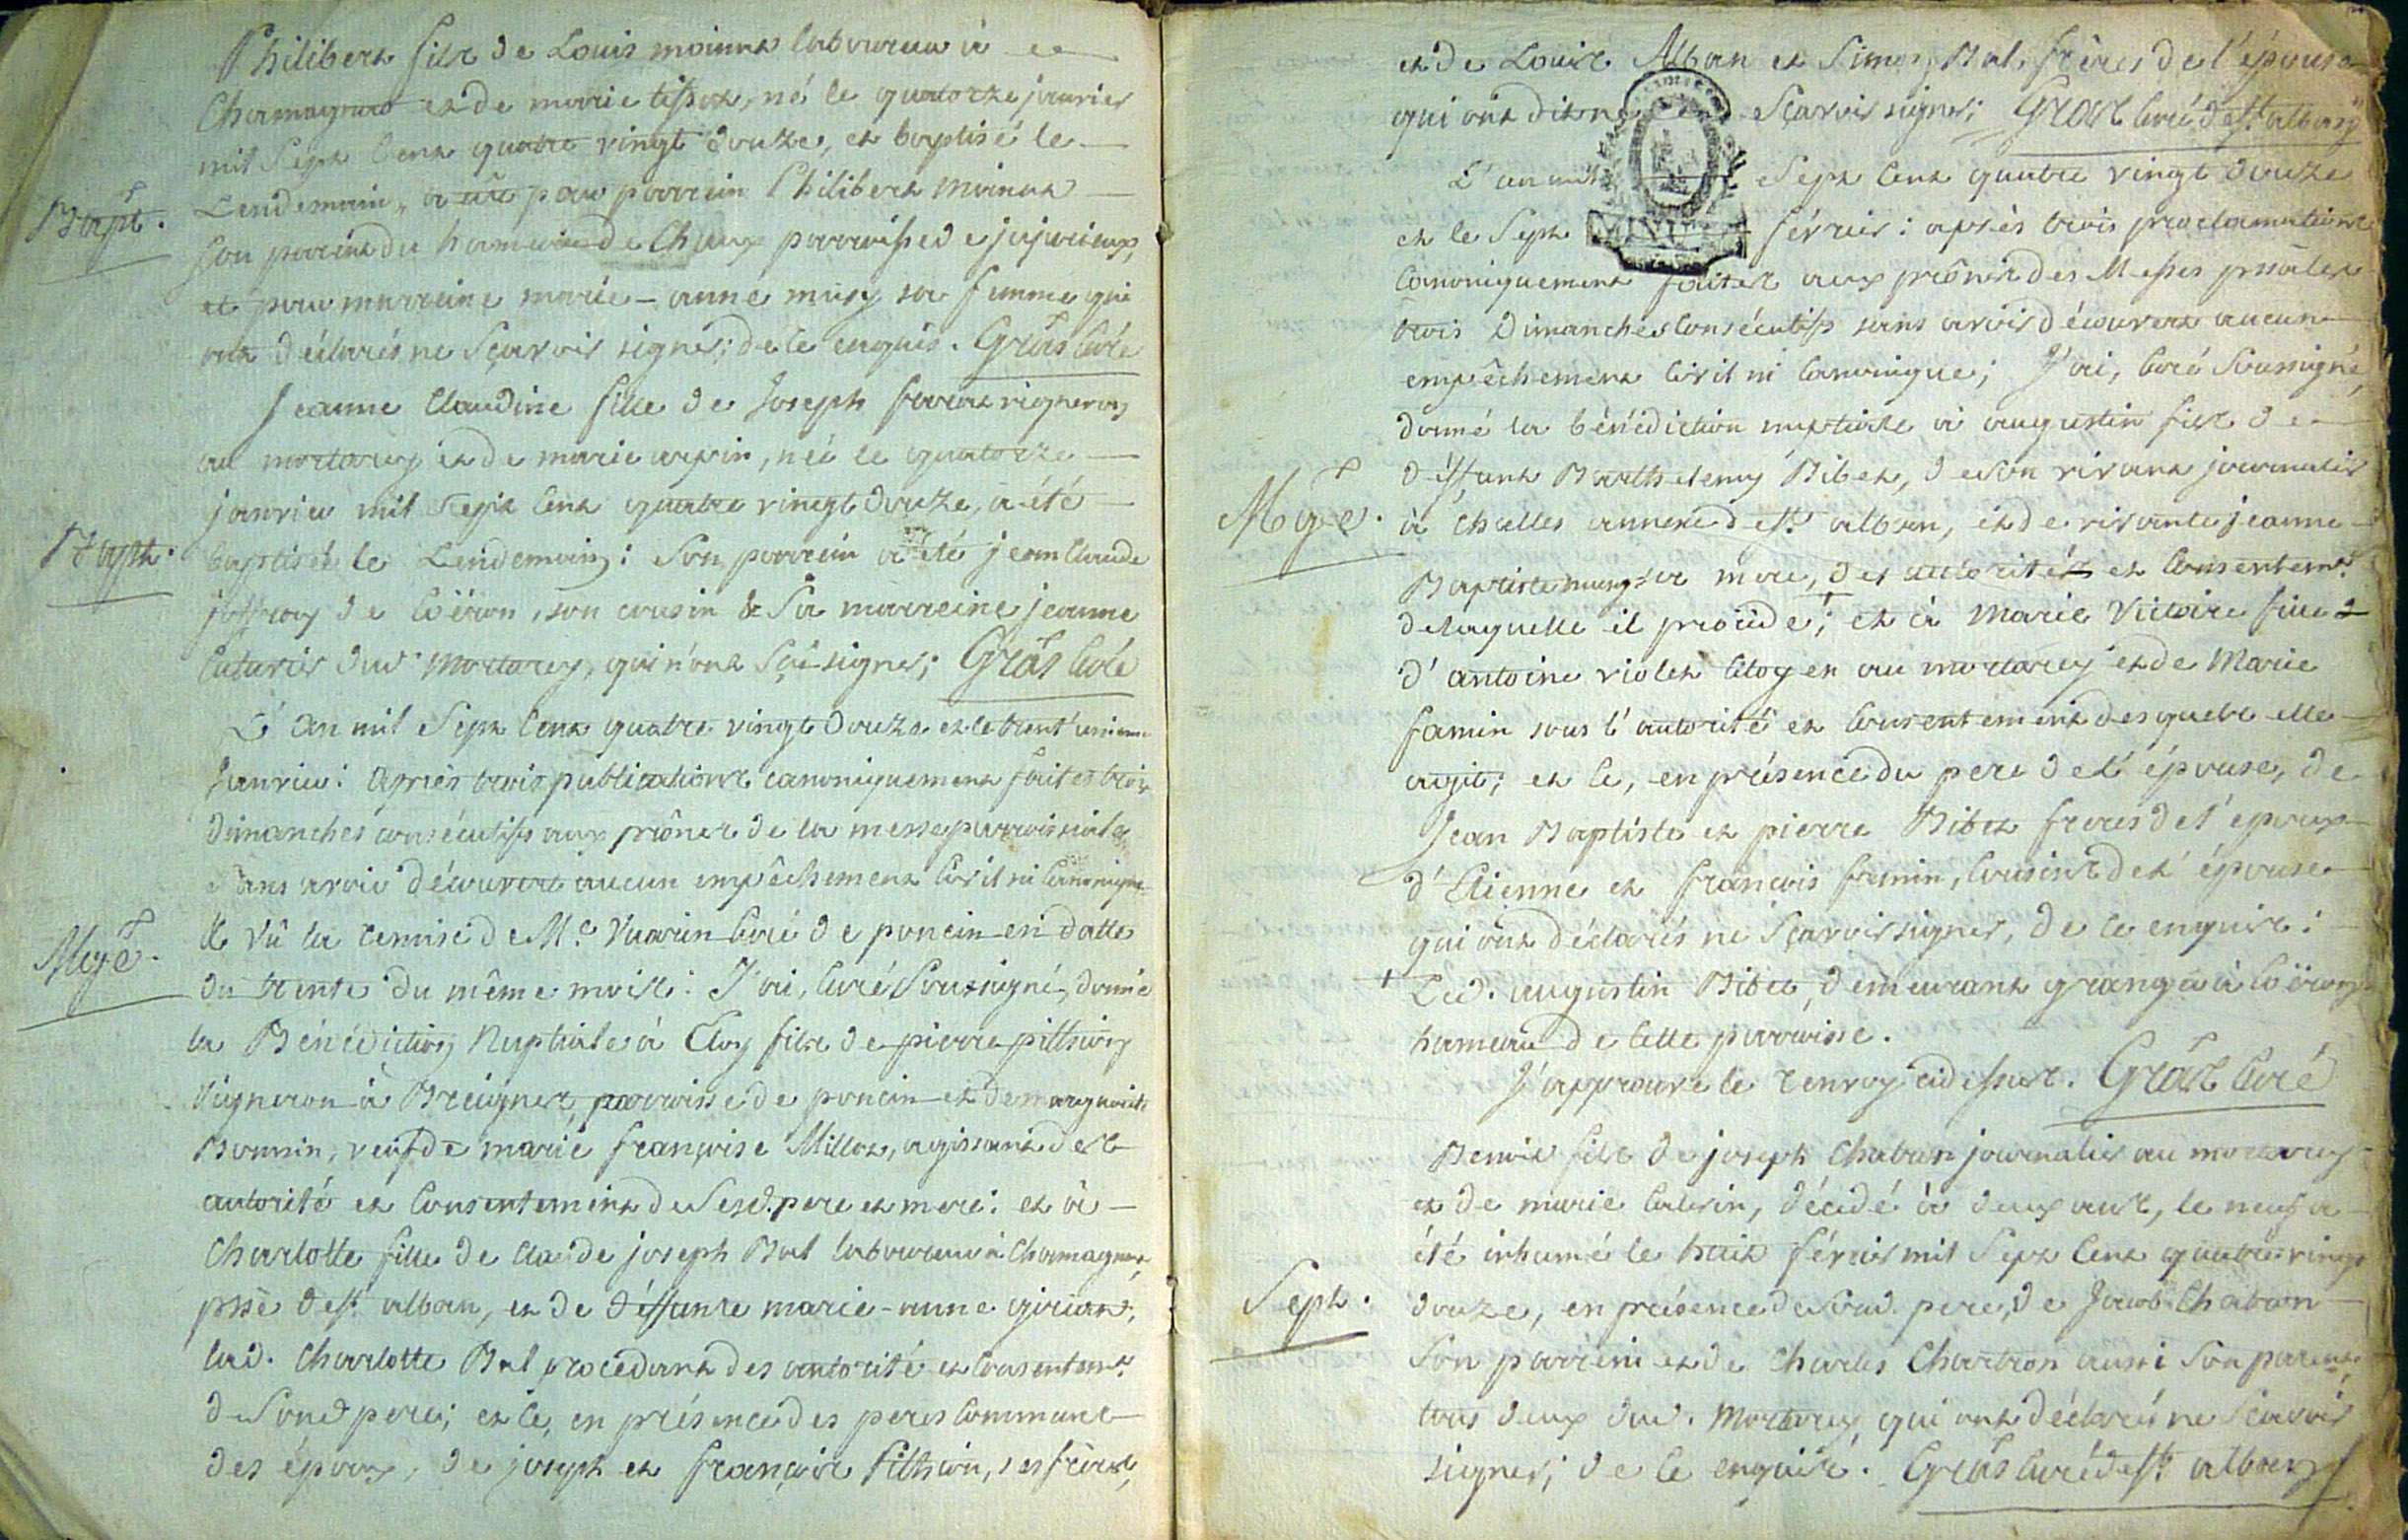 Philibert fils de Louis moinat laboureur à
Chamagnat et de marie tissot, né le quatorze janvier
mil Sept Cent quatre vingt douze, et baptisé le
Lendemain, a eu pour parrein Philibert Moinat
Bapt.
son parent du hameau de Chaux parroisse de jujurieux,
et pour marreine marie-anne musy sa femme qui
ont déclarés ne Sçavoir signer; de ce enquis. Gras Curé
Jeanne Claudine fille de Joseph favat vigneron
au mortarey et de marie arpin, née le quatorze
janvier mil Sept Cent quatre vingt douze, a été
Bapt.
baptisée le Lendemain: Son parrein a été jean Claude
joffray de Coëron, son cousin & Sa marreine jeanne
Cuturier dud. Mortarey, qui n'ont Sçu signer; Gras Curé
L'an mil Sept Cent quatre vingt douze et le trent'unieme
Janvier: Après trois publications canoniquement faites trois
dimanches consécutifs aux prônes de la messe parroissiale,
Sans avoir découvert aucun empêchement Civil ni Canonique
Mge.
& vû la remise de Mre. Vuarin Curé de poncin en datte
du trente du même mois: J'ai, Curé Soussigné, donné
la Bénédiction Nuptiale à Eloy fils de pierre pittion
Vigneron à Breignes, parroisse de poncin et de marguerite
Bonnin, veuf de marie françoise Millot, agissant de l'
autorité et Consentement de Sesd. pere et mere: et à
Charlotte fille de Claude joseph Bal laboureur à Chamagnat,
psse de St. alban, et de déffunte marie-anne girian;
lad. Charlotte Bal procédant des autorité et Consentemt.
de Sond pere; et ce, en présence des peres Communs
des époux, de joseph et françois Pittion, ses frères,
et de Louis Alban et Simon Bal, frères de l'épouse
qui ont dit ne Sçavoir signer; Gras Curé de St. alban
L'an mil Sept Cent quatre vingt douze
et le Sept février: après trois proclamations
Canoniquement faites aux prônes des Messes pssales
trois Dimanches Consécutifs sans avoir découvert aucun
empêchement Civil ni Canonique; J'ai, Curé Soussigné,
donné la bénédiction nuptiale à augustin fils de
déffunt Barthelemy Bibet, de Son vivant journalier
Mge.
à Challes annexe de St. alban, et de vivante jeanne
Baptiste musy sa mere, des autorités et Consentemt.
de laquelle il procéde; + et à Marie Victoire fille
d'antoine violet Citoyen au mortarey et de Marie
famin sous l'autorité et Consentement desquels elle
agit; et ce, en présence du pere de l'épouse, de
Jean Baptiste et pierre Bibet freres de l'époux
d'Etienne et françois famin, Cousins de l'épouse
qui ont déclarés ne Sçavoir signer, de ce enquis:
+ Led. augustin Bibet, demeurant granger à Coëron
hameau de Cette parroisse.
J'approuve le renvoy cidessus. Gras Curé
Benoit fils de joseph Chaban journalier au mortarey
et de marie Cuterin, décédé à deux ans, le neuf a
été inhumé le huit février mil Sept Cent quatre vingt
Sept.
douze, en présence de Sond. pere, de Jacob Chaban
Son parrein et de Charles Chartron aussi Son parent,
tous deux dud. Mortarey, qui ont déclarés ne Sçavoir
signer; de ce enquis. Gras Curé de St. alban